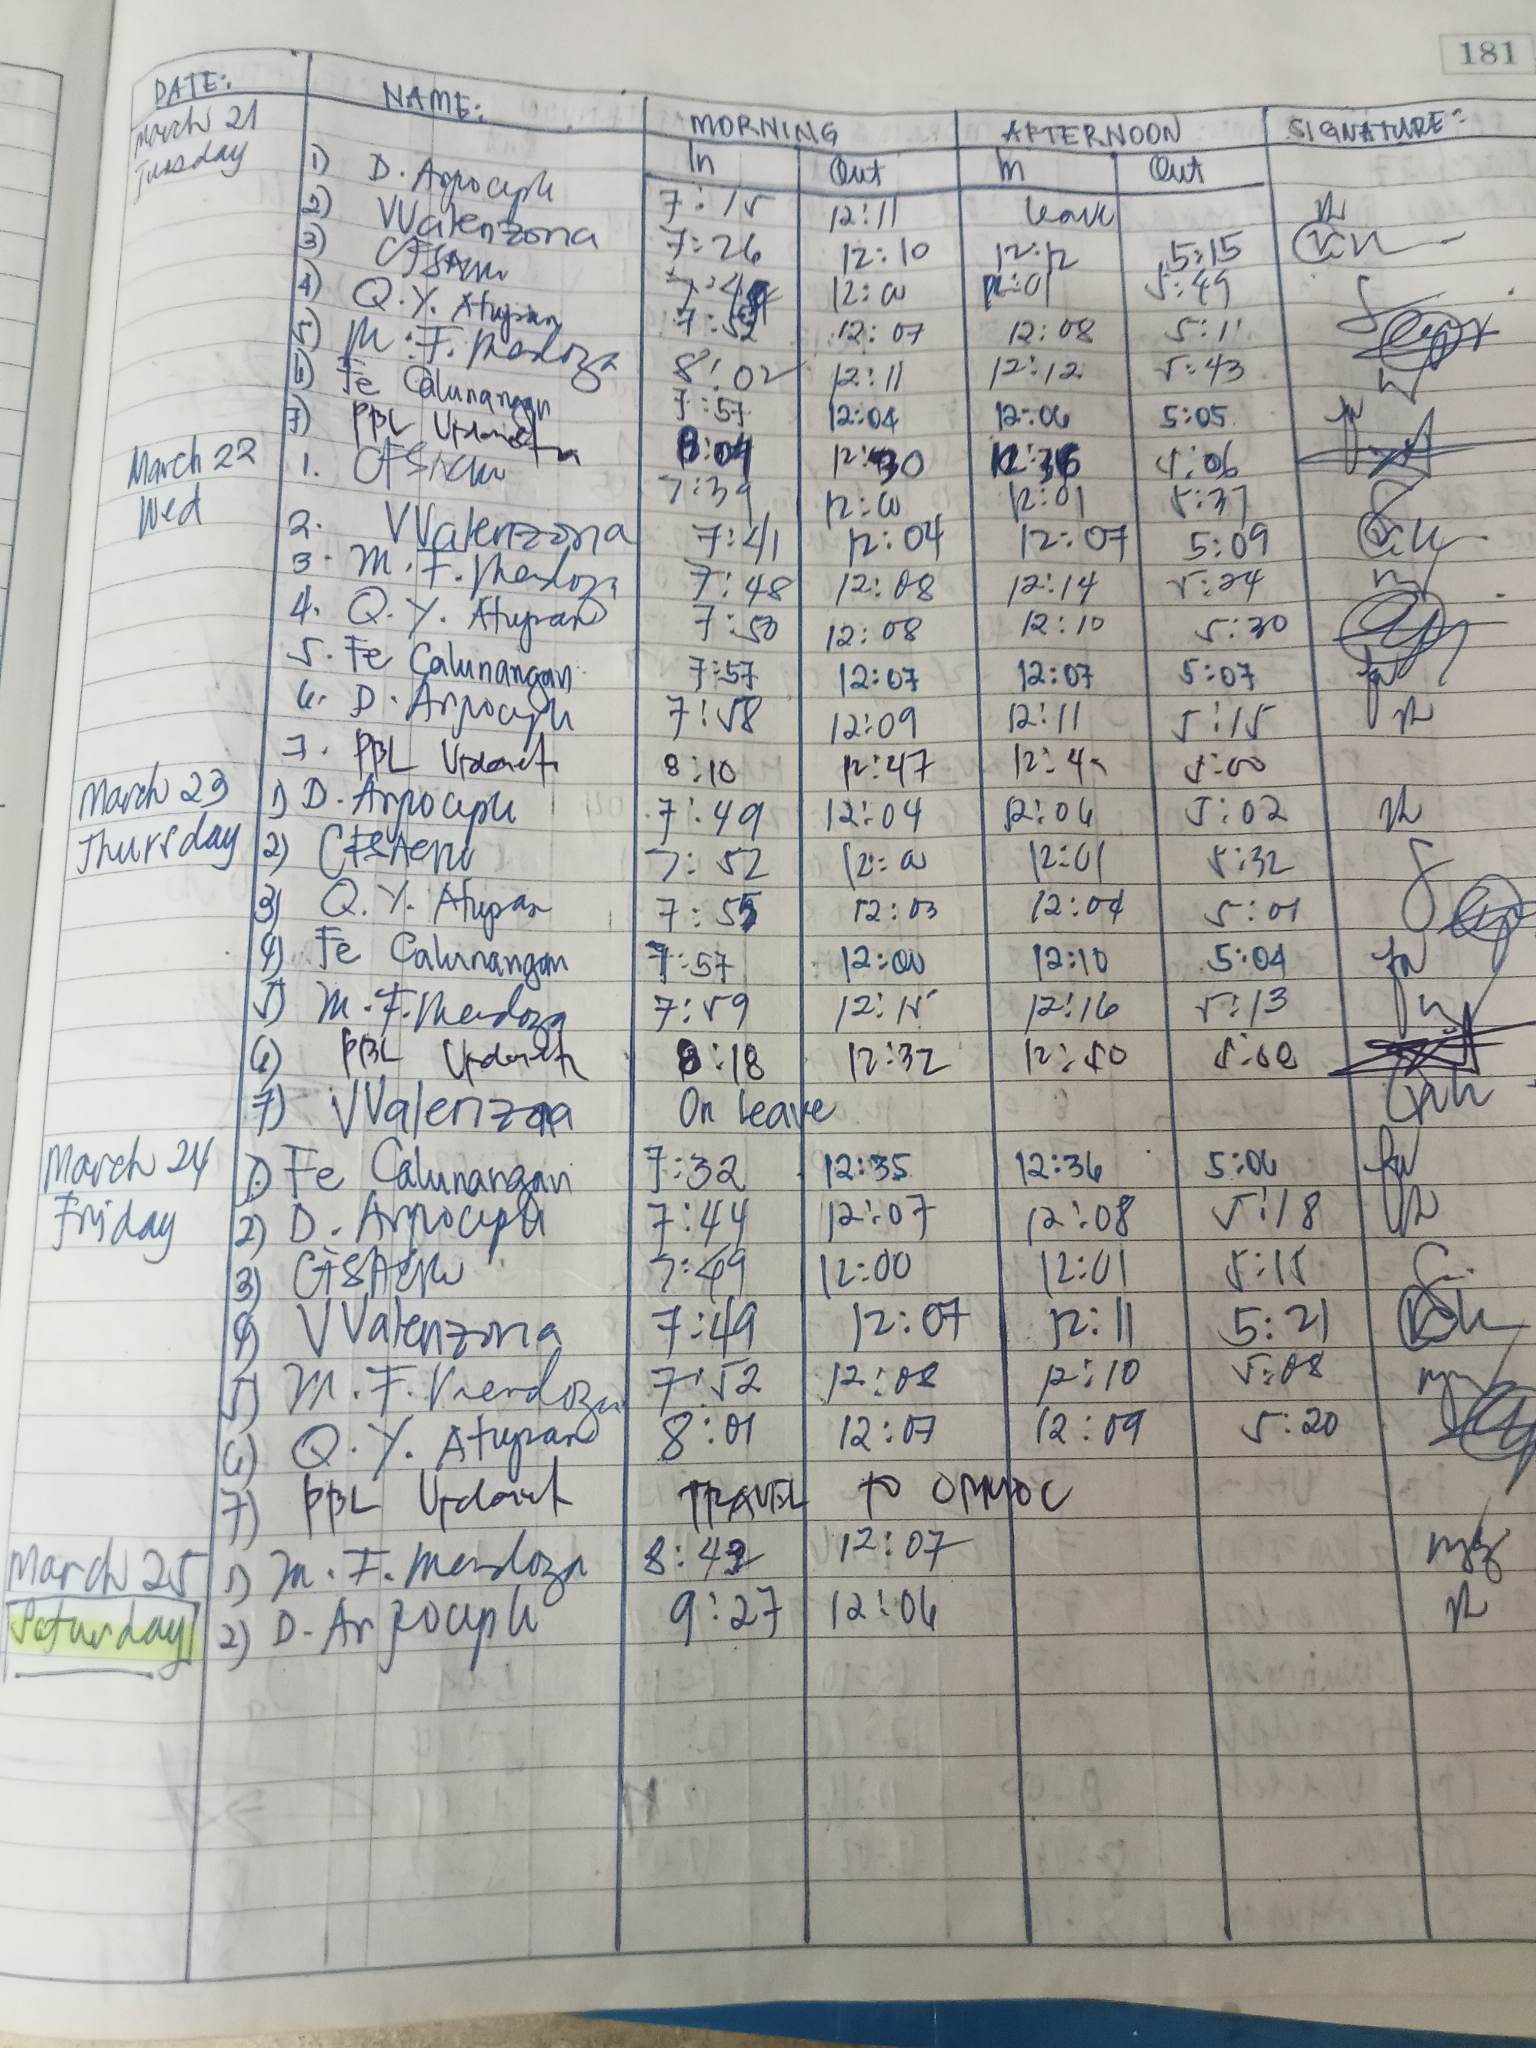 181
DATE: NAME: MORNING AFTERNOON SIGNATURE:
In Out In Out
March 21
Tuesday
1) D. 7:15 12:11 leave
2) VValenzona 7:26 12:10 12:12 5:15
3) 12:00 12:01 5:49
4) Q. Y. Atupan 7:52 12:07 12:08 5:11
5) M. F. Mendoza 8:02 12:11 12:12 5:43
6) Fe Calunangan 7:57 12:04 12:06 5:05
7) PBL 8:04 12:30 12:36 5:06
March 22
Wed
1. 7:39 12:00 12:01 5:37
2. VValenzona 7:41 12:04 12:07 5:09
3. M. F. Mendoza 7:48 12:08 12:14 5:24
4. Q. Y. Atupan 7:50 12:08 12:10 5:30
5. Fe Calunangan 7:57 12:07 12:07 5:07
6. D. 7:58 12:09 12:11 5:15
7. PBL 8:10 12:47 5:00
March 23
Thursday
1) D. 7:49 12:04 12:06 5:02
2) 7:52 12:00 12:01 5:32
3) Q. Y. Atupan 7:55 12:03 12:04 5:01
4) Fe Calunangan 7:57 12:00 12:10 5:04
5) M. F. Mendoza 7:59 12:15 12:16 5:13
6) PBL 8:18 12:32 12:50 5:00
7) VValenzona On leave
March 24
Friday
1) Fe Calunangan 7:32 12:35 12:36 5:06
2) D. 7:44 12:07 12:08 5:18
3) 7:49 12:00 12:01 5:15
4) VValenzona 7:49 12:07 12:11 5:21
5) M. F. Mendoza 7:52 12:08 12:10 5:08
6) Q. Y. Atupan 8:01 12:07 12:09 5:20
7) PBL TRAVEL TO ORMOC
March 25
Saturday
1) M. F. Mendoza 8:42 12:07
2) D. 9:27 12:06